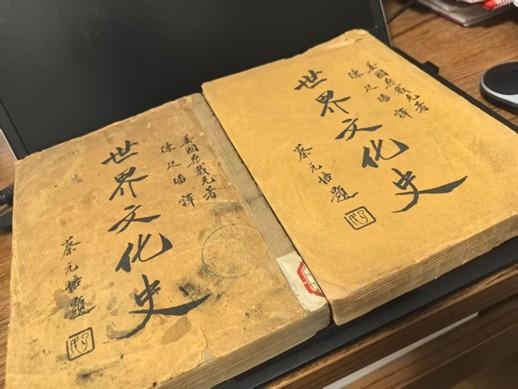 美國桑戴克著
陳廷璠譯
世界文化史
蔡元培題
美國桑戴克著
陳廷璠譯
世界文化史
蔡元培題